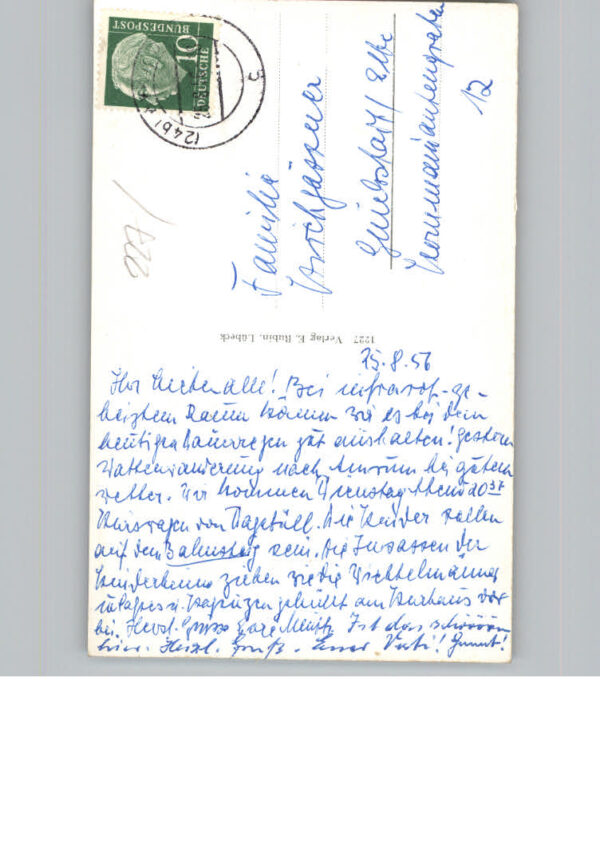 DEUTSCHE
BUNDESPOST
10
(24b)
Familie
Glückstadt/Elbe
12
1227 Verlag E. Rubin, Lübeck
25.8.56
Ihr Lieben alle! Bei infrarot-ge-
heiztem Raum können wir es bei dem
heutigen Dauerregen gut aushalten! Gestern
Wattenwanderung nach Amrum bei gutem
Wetter. Wir kommen Dienstag Abend 20 37
Kurswagen von Dagebüll. Die Kinder sollen
auf dem Bahnsteig sein. Die Insassen der
Kinderheime ziehen wie die Wichtelmänner
in Capes u. Kapuzen gehüllt am Kurhaus vor-
bei. Herzl. Grüsse Eure Ist das schöööön
hier. Herzl. Gruß. Euer Vati!